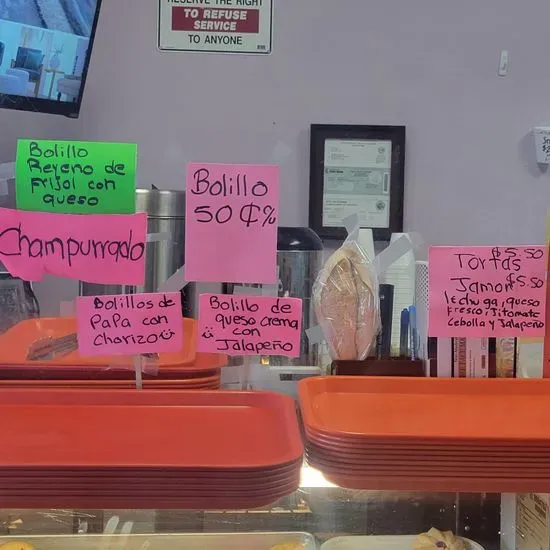 RESERVE THE RIGHT
TO REFUSE
SERVICE
TO ANYONE
Bolillo
Reyeno de
frijol con
queso
Champurrado
Bolillo
50 ¢%
Bolillos de
PaPa con
Chorizo
Bolillo de
queso crema
con
Jalapeño
$5.50
Tortas
Jamon $5.50
lechuga, queso
fresco, Jitomate
Cebolla y Jalapeño